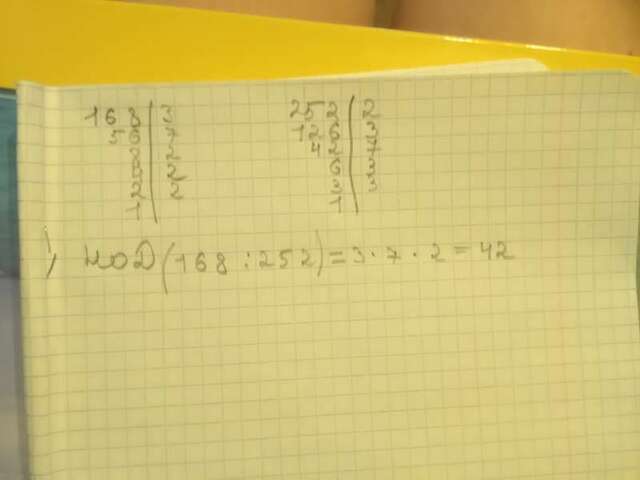 168 | 3
56 | 7
8 | 2
4 | 2
2 | 2
1
252 | 2
126 | 3
42 | 7
6 | 2
3 | 3
1
НОД (168 : 252) = 3 · 7 · 2 = 42